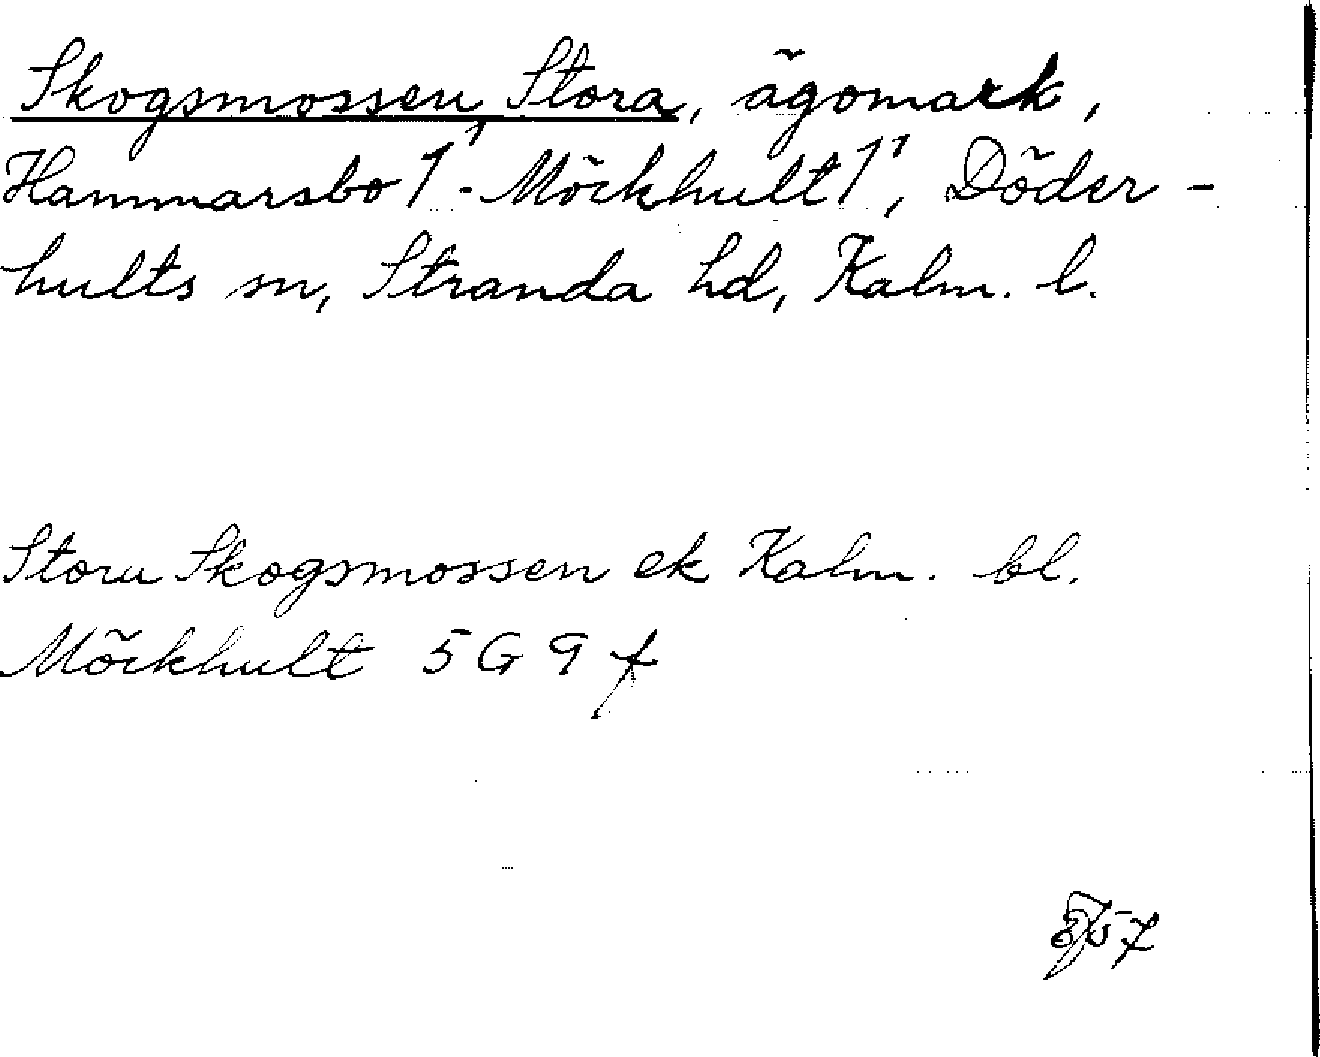 Skogsmossen, Stora, ägomark,
Hammarsbo 1¹ - Möckhult 1¹, Döder-
hults sn, Stranda hd, Kalm. l.
Stora Skogsmossen ek Kalm. bl.
Möckhult 5G 9f